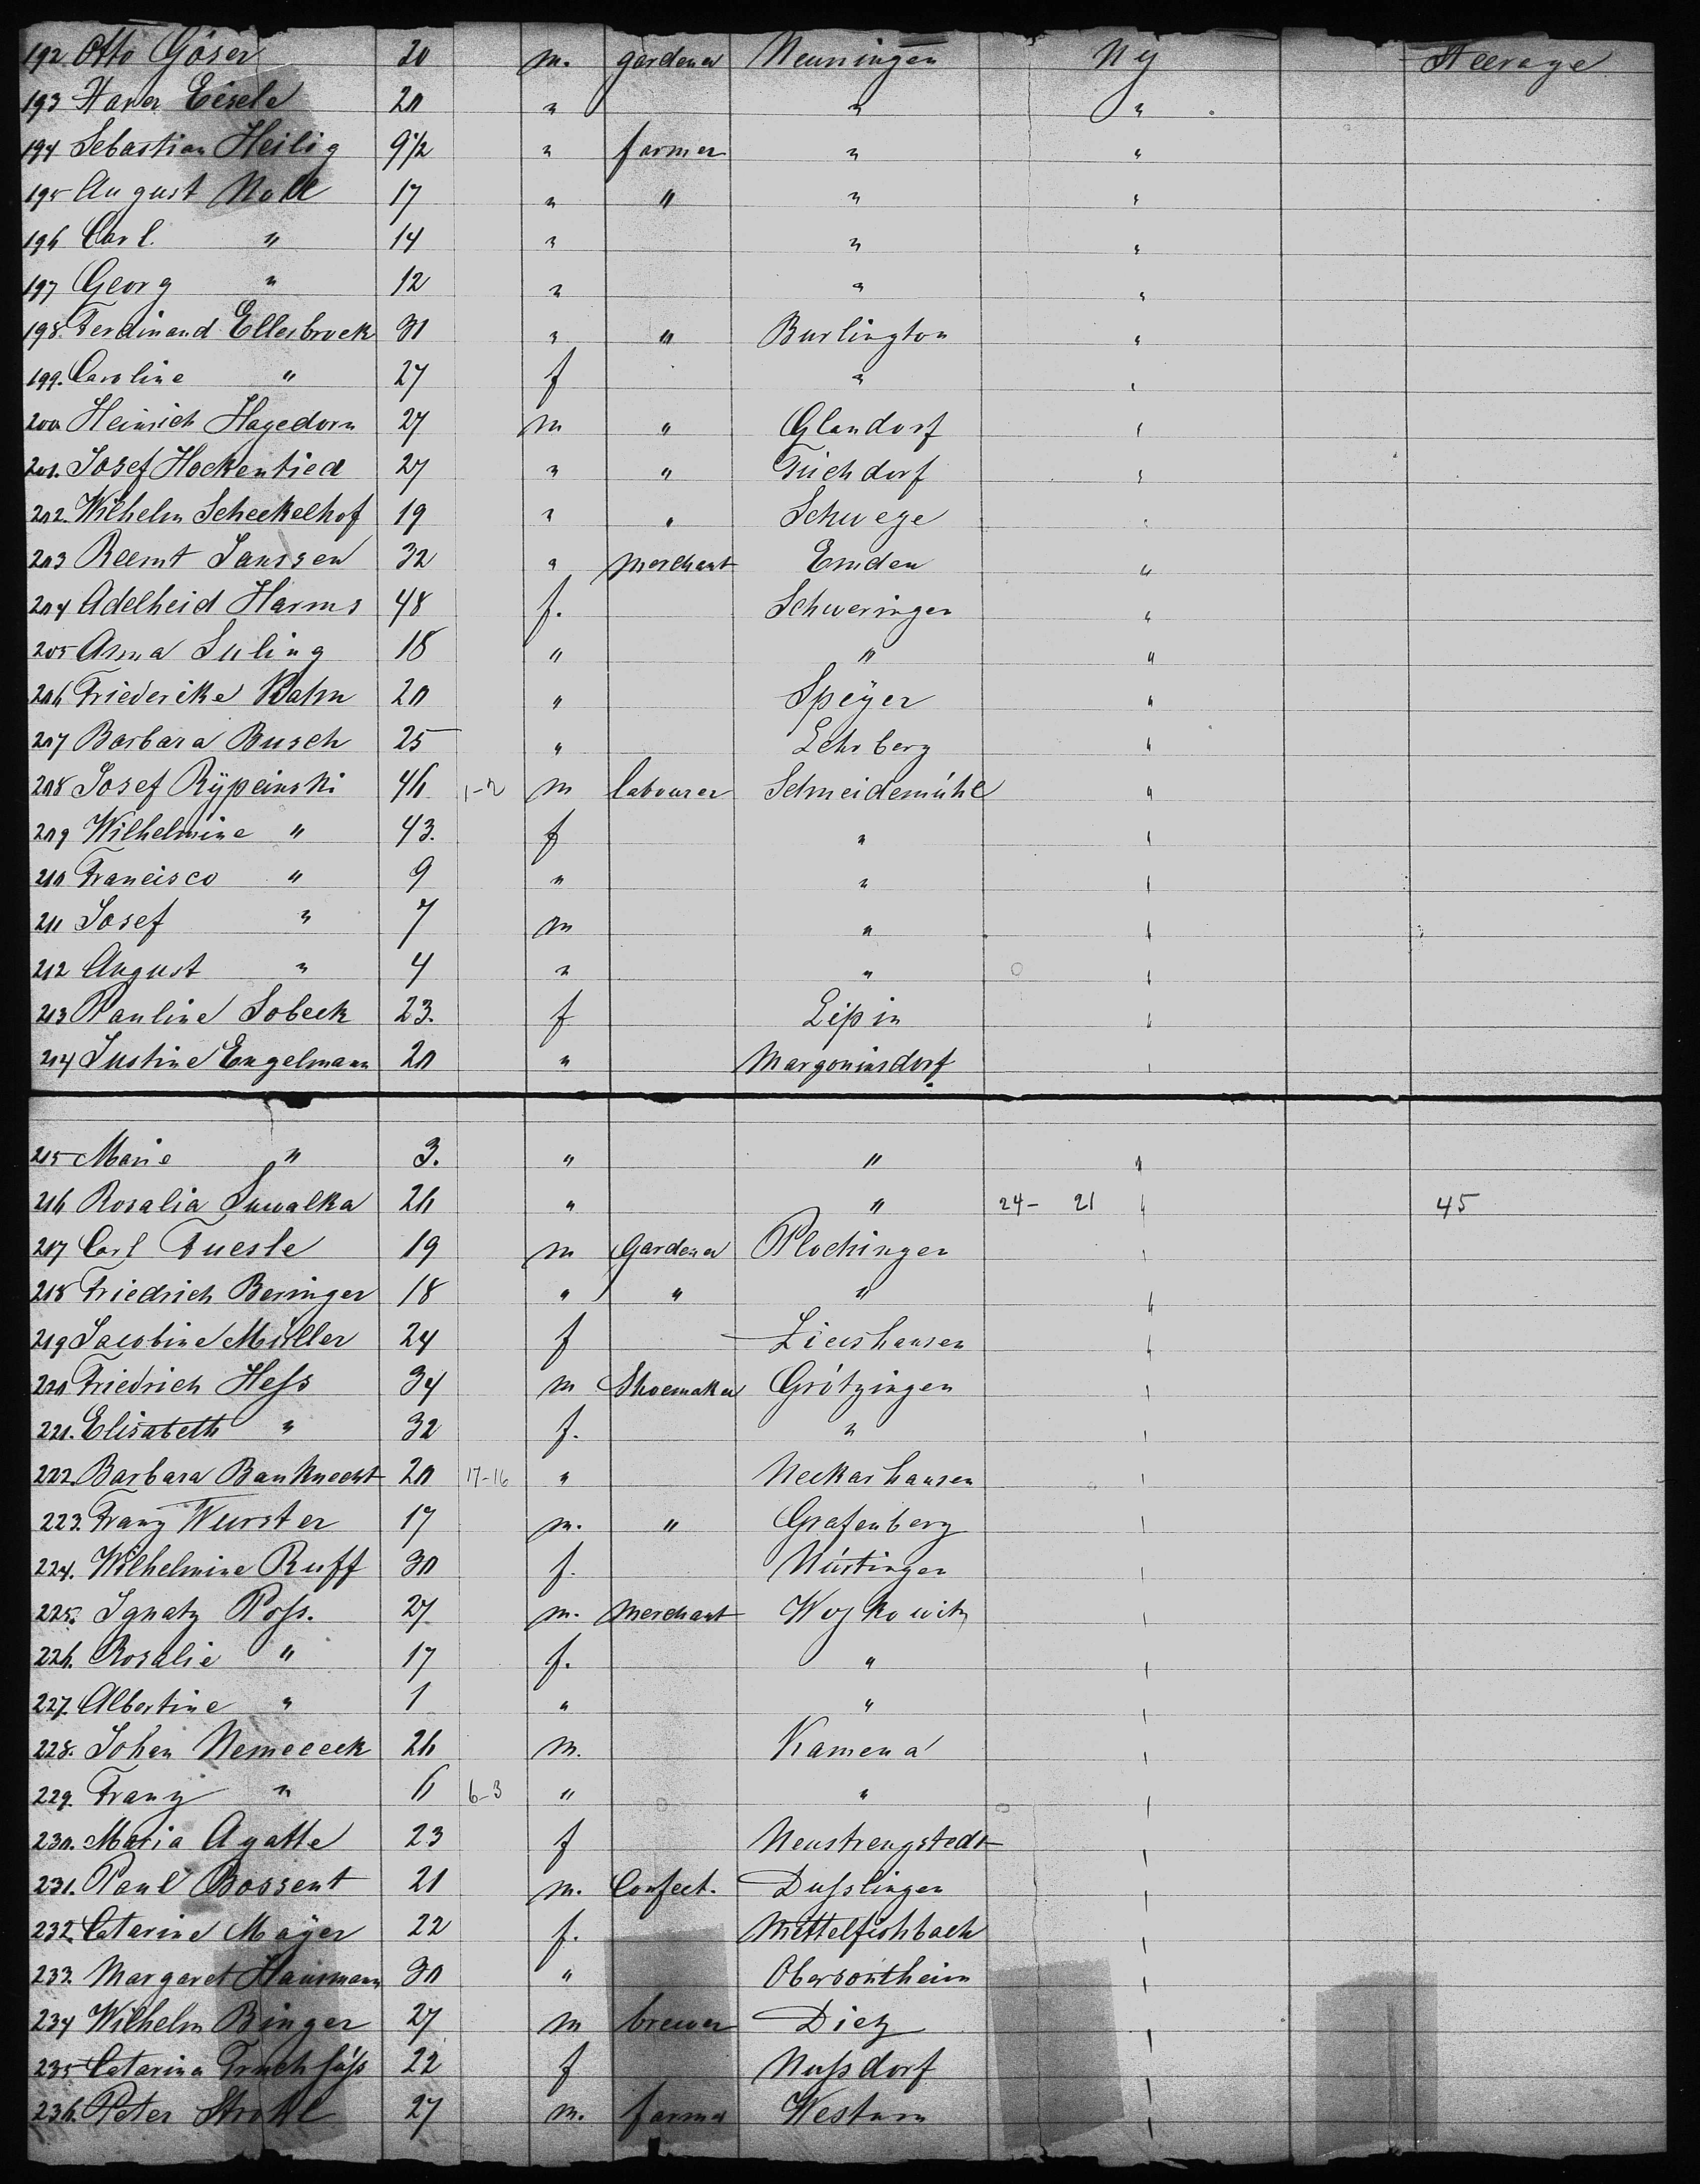 192 Otto Göser 20 m. gardener Neuningen N Y Steerage
193 Xaver Eisele 20 " " "
194 Sebastian Heilig 9 1/2 " farmer " "
195 August Noll 17 " " " "
196 Carl " 14 " " "
197 Georg " 12 " " "
198. Ferdinand Ellerbrock 30 " " Burlington "
199. Caroline " 27 f " "
200 Heinrich Hagedorn 27 m " Glandorf "
201. Josef Hockentied 27 " " Füchdorf "
202. Wilhelm Scheckelhof 19 " " Schwege "
203 Reemt Janssen 32 " merchant Emden "
204 Adelheid Harms 48 f. Schweringen "
205 Anna Suling 18 " " "
206 Friederike Kahn 20 " Speÿer "
207 Barbara Busch 25 " Lehrberg "
208 Josef Rÿpeinski 46 1-2 m labourer Schneidemühl "
209 Wilhelmine " 43. f " "
210 Francisco " 9 " " "
211 Josef " 7 m " "
212 August " 4 " " "
213 Pauline Sobeck 23. f Lipin "
214 Justine Engelmann 20 " Margoninsdorf "
215 Marie " 3. " " "
216 Rosalia Suwalka 26 " " 24- 21 " 45
217 Carl Fuesle 19 m Gardener Plochingen "
218 Friedrich Beringer 18 " " " "
219 Jacobine Müller 24 f Zieshausen "
220 Friedrich Hess 34 m Shoemaker Grötzingen "
221. Elisabeth " 32 f. " "
222. Barbara Bauknecht 20 17-16 " Neckarhausen "
223. Franz Wurster 17 m. " Grafenberg "
224. Wilhelmine Ruff 30 f. Nürtingen "
225. Ignatz Poss. 27 m. Merchant Woykowitz "
226. Rosalie " 17 f. " "
227. Albertine " 1 " " "
228. Johan Nemeceek 26 m. Kamena "
229. Franz " 6 6-3 " " "
230. Maria Agatte 23 f Neustrengstedt "
231. Paul Bossent 21 m. Confect. Dusslingen "
232. Catarine Mayer 22 f. Mittelfishbach "
233. Margaret Hausmann 30 " Obersontheim "
234 Wilhelm Binger 27 m brewer Diez "
235 Catarina Truchsäss 22 f Nussdorf "
236. Peter Strohl 27 m. farmer Westurn "